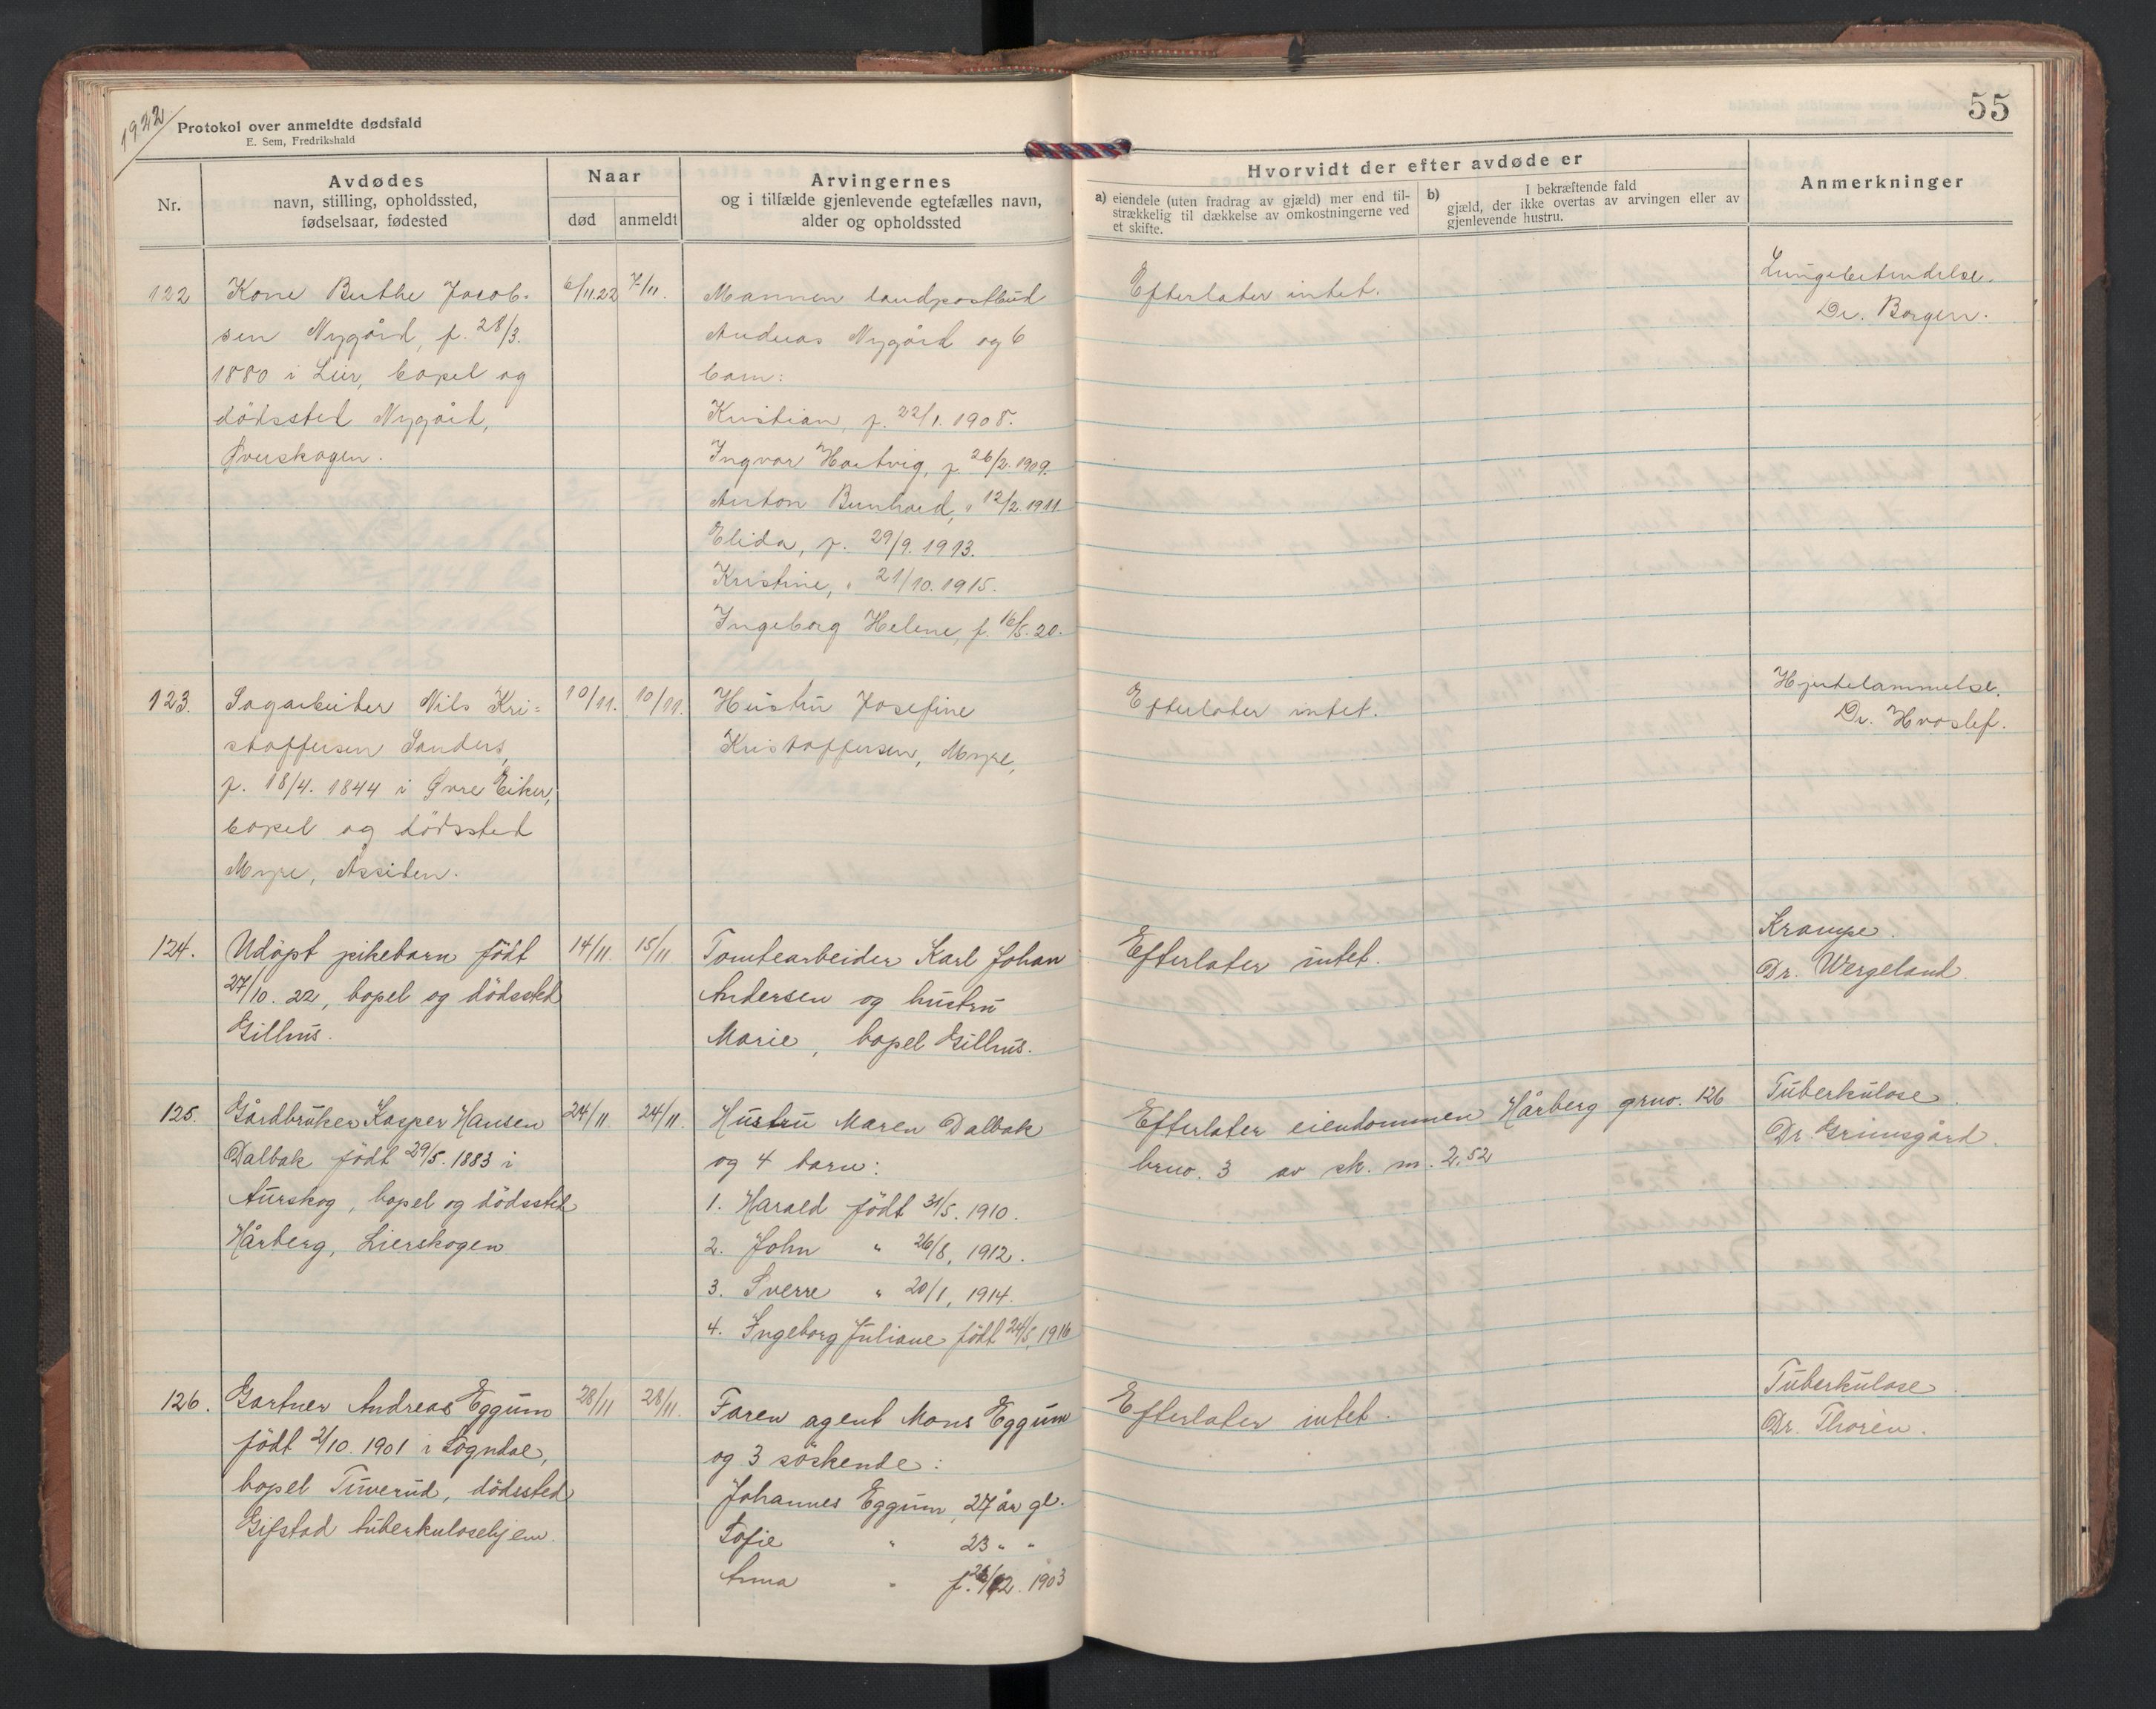 1922
Protokol over anmeldte dødsfald
E. Sem, Fredrikshald
55
Nr.
Avdødes
navn, stilling, opholdssted,
fødselsaar, fødested
Naar
død
anmeldt
Arvingernes
og i tilfælde gjenlevende egtefælles navn,
alder og opholdssted
Hvorvidt der efter avdøde er
a) eiendele (uten fradrag av gjæld) mer end til-
strækkelig til dækkelse av omkostningerne ved
et skifte.
b) I bekræftende fald
gjæld, der ikke overtas av arvingen eller av
gjenlevende hustru.
Anmerkninger
122
Kone Berthe Jacob-
sen Nygård, f. 28/3.
1880 i Lier, bopel og
dödssted Nygård,
Øverskogen.
6/11.22
7/11.
Mannen landpostbud
Andreas Nygård og 6
barn:
Kristian, f. 22/1. 1908.
Ingvar Hartvig, f. 26/2. 1909.
Anton Bernhard, " 12/2. 1911.
Elida, f. 29/9. 1913.
Kristine, " 21/10. 1915.
Ingeborg Helene, f. 16/5. 20.
Efterlater intet.
Lungebetendelse.
Dr. Borgen.
123.
Sagarbeider Nils Kri=
stoffersen Sanders,
f. 18/4. 1844 i Øvre Eiker,
bopel og dödssted
Myre, Åssiden.
10/11.
10/11.
Hustru Josefine
Kristoffersen, Myre,
Efterlater intet.
Hjertelammelse.
Dr. Hvoslef.
124.
Udöpt pikebarn födt
27/10. 22, bopel og dödssted
Gilhus.
14/11
15/11
Tomtearbeider Karl Johan
Andersen og hustru
Marie, bopel Gilhus.
Efterlater intet.
Krampe.
Dr. Wergeland.
125.
Gårdbruker Kasper Hansen
Dalbak födt 29/5. 1883 i
Aurskog, bopel og dödssted
Hårberg, Lierskogen
24/11
24/11.
Hustru Maren Dalbak
og 4 barn:
1. Harald födt 31/5. 1910.
2. John " 26/8, 1912.
3. Sverre " 20/1, 1914.
4. Ingeborg Juliane födt 24/5, 1916
Efterlater eiendommen Hårberg grno. 126
brno. 3 av sk. m. 2,52
Tuberkulose.
Dr. Grimsgård.
126.
Gartner Andreas Eggum
födt 2/10. 1901 i Sogndal,
bopel Tuverud, dödssted
Gifstad tuberkulosehjem.
28/11
28/11.
Faren agent Mons Eggum
og 3 söskende:
Johannes Eggum, 27 år gl.
Sofie " 23 " "
Anna " f. /12. 1903
Efterlater intet.
Tuberkulose.
Dr. Thorén.